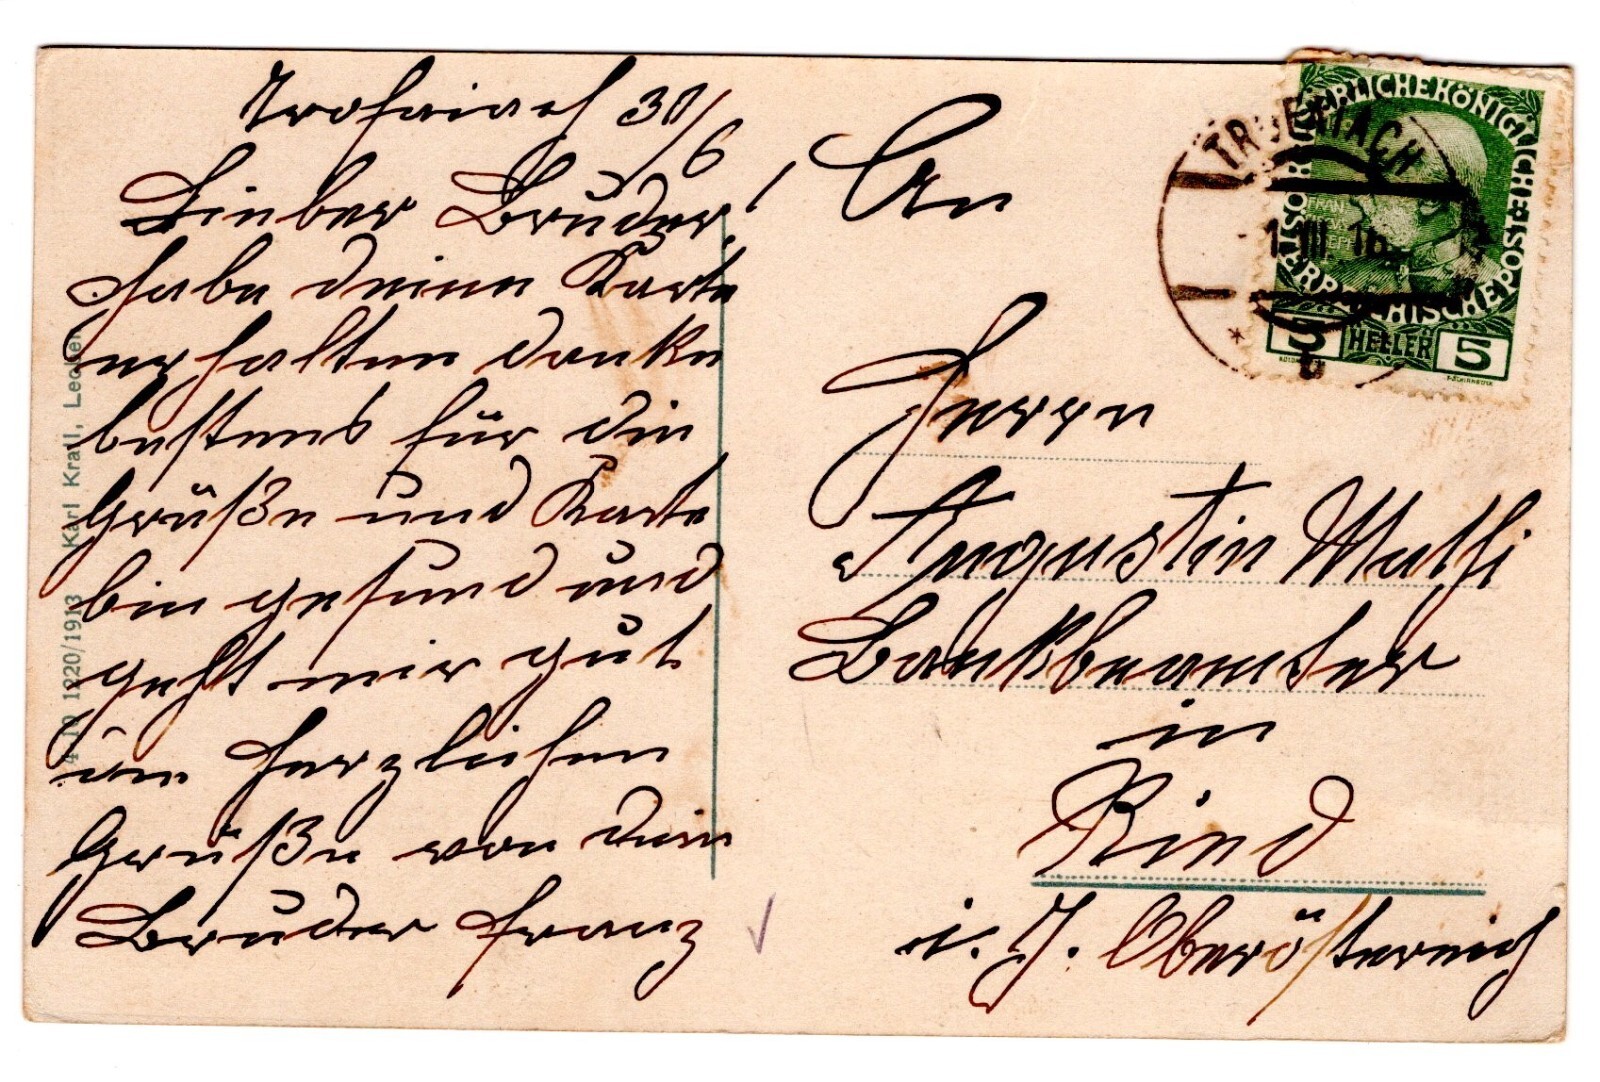 Trofaiach 30/6
Lieber Bruder!
habe deine Karte
erhalten danke
bestens für die
Grüße und Karte
bin gesund und
geht mir gut
herzlichen
Grüße von dein
Bruder Franz
An
Herrn
Augustin Mathi
Bankbeamter
in
Ried
i. J. Oberösterreich
4-10 1220/1913 Karl Krall, Leoben
TROFAIACH
1.VII.16
KAISERLICHE KÖNIGLICHE ÖSTERREICHISCHE POST
FRANZ JOSEPH
5 HELLER 5